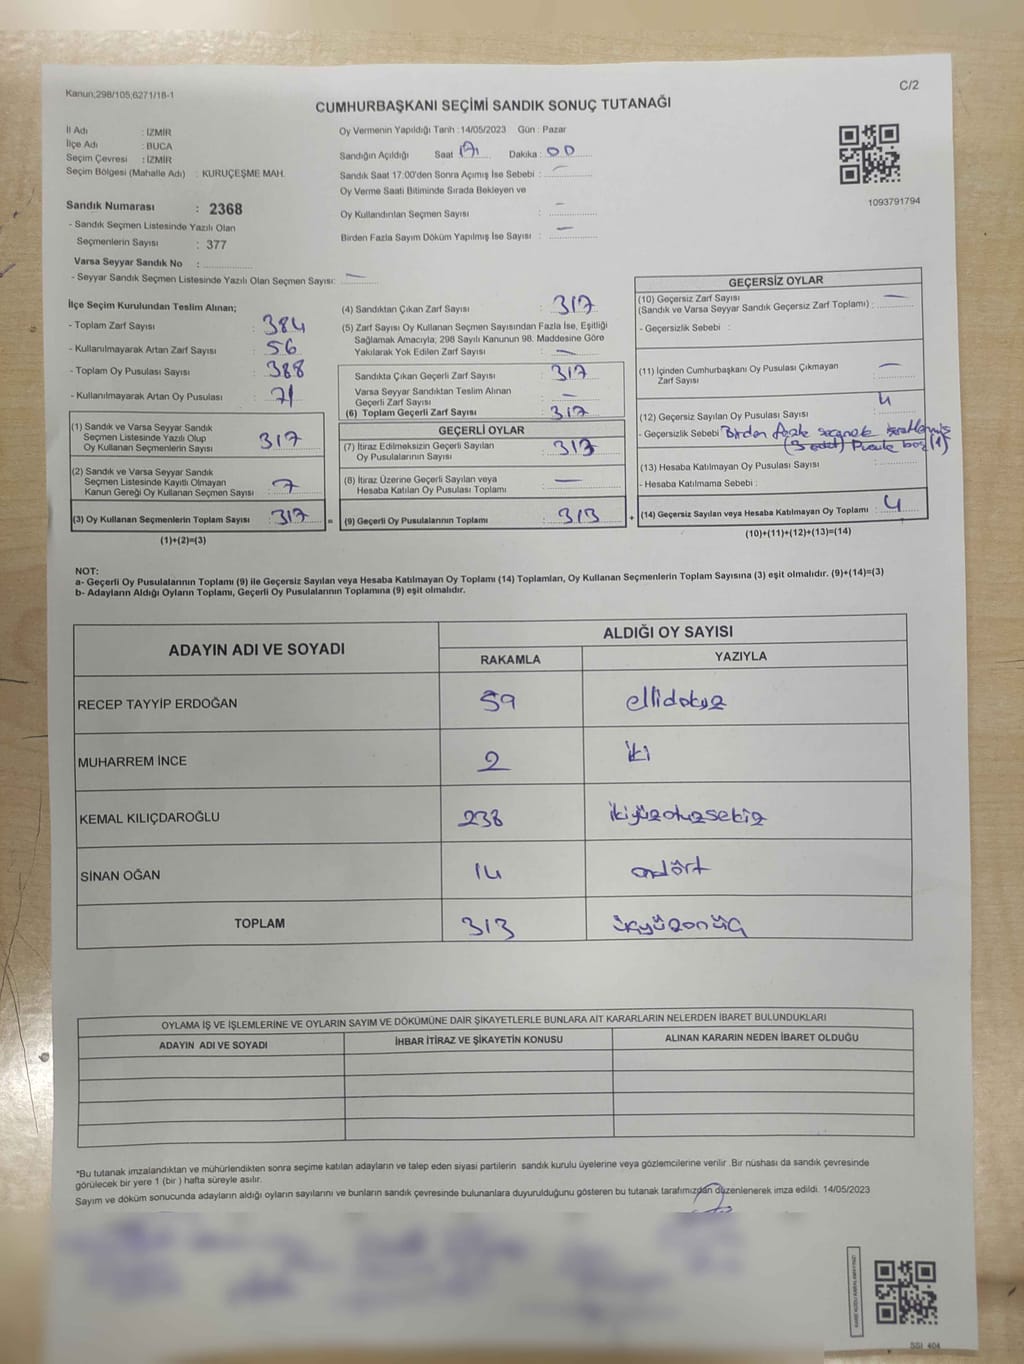 Kanun:298/105,6271/18-1
C/2
CUMHURBAŞKANI SEÇİMİ SANDIK SONUÇ TUTANAĞI
İl Adı : İZMİR
İlçe Adı : BUCA
Seçim Çevresi : İZMİR
Seçim Bölgesi (Mahalle Adı) : KURUÇEŞME MAH.
Sandık Numarası : 2368
- Sandık Seçmen Listesinde Yazılı Olan
Seçmenlerin Sayısı : 377
Varsa Seyyar Sandık No :
- Seyyar Sandık Seçmen Listesinde Yazılı Olan Seçmen Sayısı: —
Oy Vermenin Yapıldığı Tarih :14/05/2023 Gün : Pazar
Sandığın Açıldığı Saat Dakika : 00
Sandık Saat 17:00'den Sonra Açımış İse Sebebi : —
Oy Verme Saati Bitiminde Sırada Bekleyen ve
Oy Kullandırılan Seçmen Sayısı : —
Birden Fazla Sayım Döküm Yapılmış İse Sayısı : —
1093791794
İlçe Seçim Kurulundan Teslim Alınan;
- Toplam Zarf Sayısı : 384
- Kullanılmayarak Artan Zarf Sayısı : 56
- Toplam Oy Pusulası Sayısı : 388
- Kullanılmayarak Artan Oy Pusulası : 71
(1) Sandık ve Varsa Seyyar Sandık
Seçmen Listesinde Yazılı Olup
Oy Kullanan Seçmenlerin Sayısı : 317
(2) Sandık ve Varsa Seyyar Sandık
Seçmen Listesinde Kayıtlı Olmayan
Kanun Gereği Oy Kullanan Seçmen Sayısı :
(3) Oy Kullanan Seçmenlerin Toplam Sayısı : 317
(1)+(2)=(3)
(4) Sandıktan Çıkan Zarf Sayısı : 317
(5) Zarf Sayısı Oy Kullanan Seçmen Sayısından Fazla İse, Eşitliği
Sağlamak Amacıyla, 298 Sayılı Kanunun 98. Maddesine Göre
Yakılarak Yok Edilen Zarf Sayısı : —
Sandıkta Çıkan Geçerli Zarf Sayısı : 317
Varsa Seyyar Sandıktan Teslim Alınan
Geçerli Zarf Sayısı : —
(6) Toplam Geçerli Zarf Sayısı : 317
GEÇERLİ OYLAR
(7) İtiraz Edilmeksizin Geçerli Sayılan
Oy Pusulalarının Sayısı : 313
(8) İtiraz Üzerine Geçerli Sayılan veya
Hesaba Katılan Oy Pusulası Toplamı : —
= (9) Geçerli Oy Pusulalarının Toplamı : 313
GEÇERSİZ OYLAR
(10) Geçersiz Zarf Sayısı
(Sandık ve Varsa Seyyar Sandık Geçersiz Zarf Toplamı) : —
- Geçersizlik Sebebi :
(11) İçinden Cumhurbaşkanı Oy Pusulası Çıkmayan
Zarf Sayısı : —
(12) Geçersiz Sayılan Oy Pusulası Sayısı : 4
- Geçersizlik Sebebi Birden fazla seçenek işaretlenmiş
(3 adet) Pusula boş (1)
(13) Hesaba Katılmayan Oy Pusulası Sayısı :
- Hesaba Katılmama Sebebi :
+ (14) Geçersiz Sayılan veya Hesaba Katılmayan Oy Toplamı : 4
(10)+(11)+(12)+(13)=(14)
NOT:
a- Geçerli Oy Pusulalarının Toplamı (9) ile Geçersiz Sayılan veya Hesaba Katılmayan Oy Toplamı (14) Toplamları, Oy Kullanan Seçmenlerin Toplam Sayısına (3) eşit olmalıdır. (9)+(14)=(3)
b- Adayların Aldığı Oyların Toplamı, Geçerli Oy Pusulalarının Toplamına (9) eşit olmalıdır.
ADAYIN ADI VE SOYADI
ALDIĞI OY SAYISI
RAKAMLA YAZIYLA
RECEP TAYYİP ERDOĞAN 59 ellidokuz
MUHARREM İNCE 2 iki
KEMAL KILIÇDAROĞLU 238 ikiyüzotuzsekiz
SİNAN OĞAN 14 ondört
TOPLAM 313 üçyüzonüç
OYLAMA İŞ VE İŞLEMLERİNE VE OYLARIN SAYIM VE DÖKÜMÜNE DAİR ŞİKAYETLERLE BUNLARA AİT KARARLARIN NELERDEN İBARET BULUNDUKLARI
ADAYIN ADI VE SOYADI İHBAR İTİRAZ VE ŞİKAYETİN KONUSU ALINAN KARARIN NEDEN İBARET OLDUĞU
*Bu tutanak imzalandıktan ve mühürlendikten sonra seçime katılan adayların ve talep eden siyasi partilerin sandık kurulu üyelerine veya gözlemcilerine verilir .Bir nüshası da sandık çevresinde
görülecek bir yere 1 (bir ) hafta süreyle asılır.
Sayım ve döküm sonucunda adayların aldığı oyların sayılarını ve bunların sandık çevresinde bulunanlara duyurulduğunu gösteren bu tutanak tarafımızdan düzenlenerek imza edildi. 14/05/2023
SSI_404